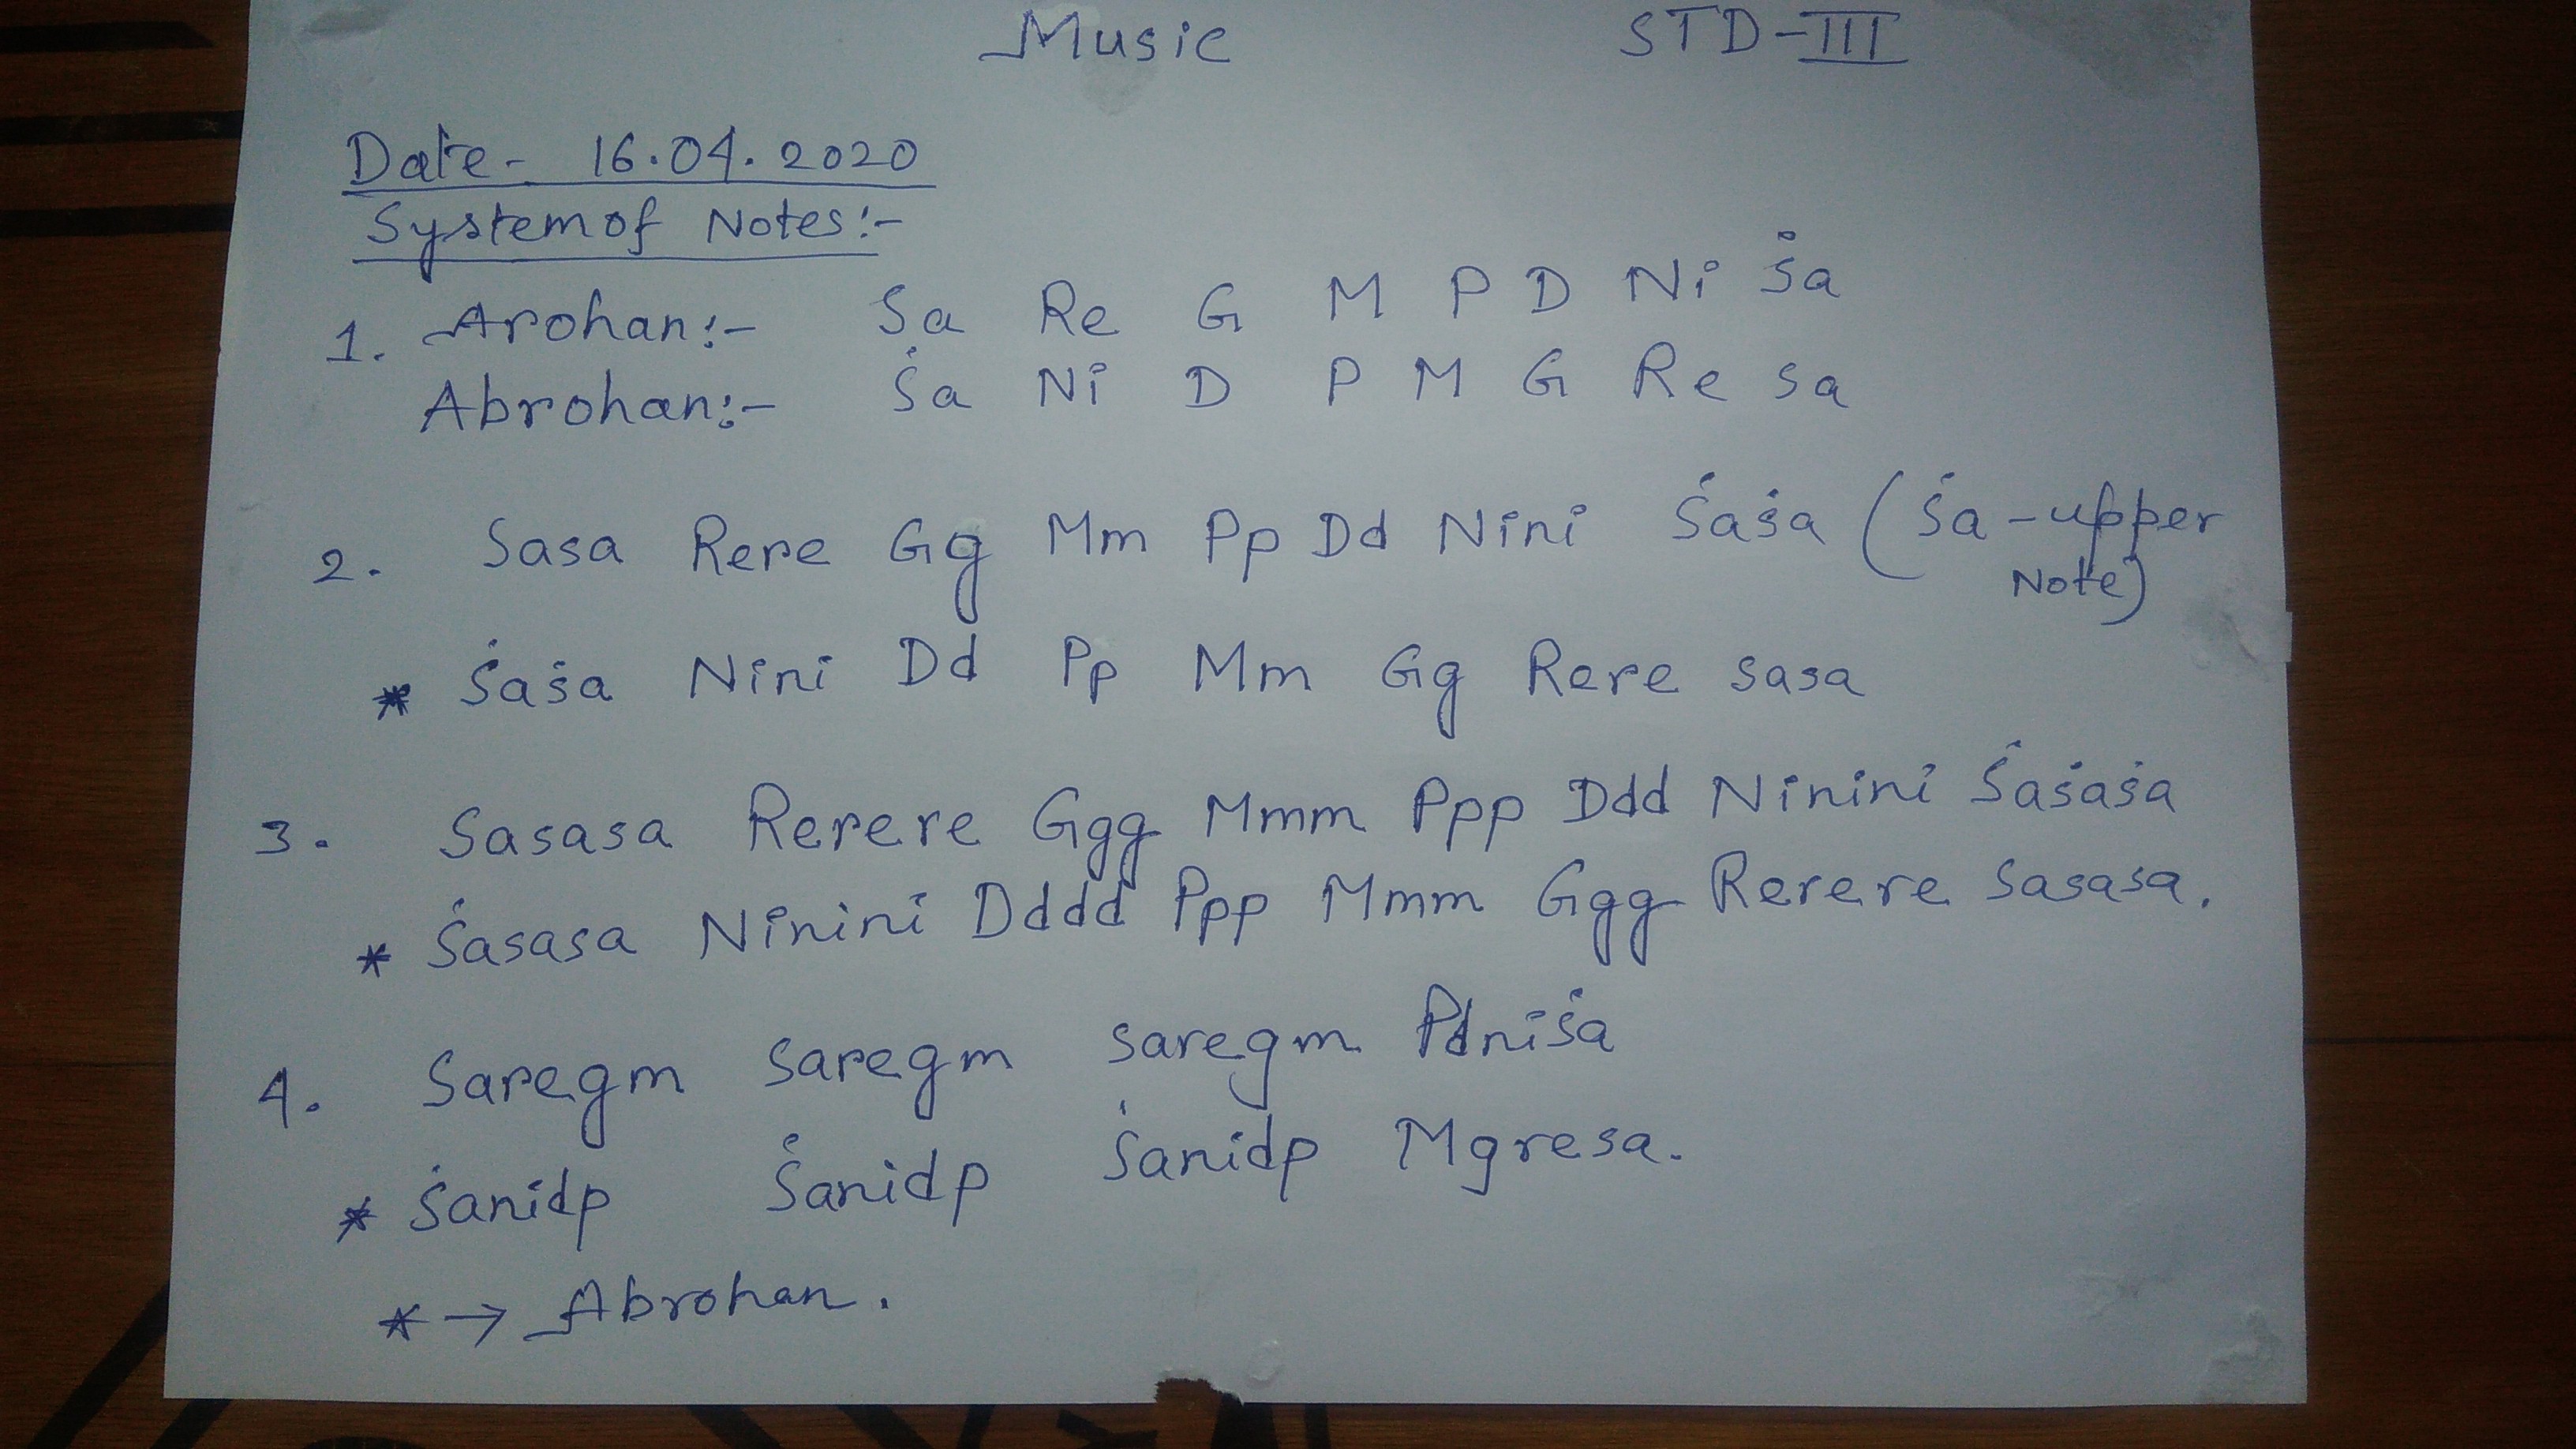 Music STD-III
Date- 16.04.2020
System of Notes:-
1. Arohan:- Sa Re G M P D Ni Ṡa
Abrohan:- Ṡa Ni D P M G Re Sa
2. Sasa Rere Gg Mm Pp Dd Nini Ṡaṡa (Ṡa-upper
Note)
* Ṡaṡa Nini Dd Pp Mm Gg Rere sasa
3. Sasasa Rerere Ggg Mmm Ppp Ddd Ninini Ṡaṡaṡa
* Ṡasasa Ninini Dddd Ppp Mmm Ggg Rerere Sasasa.
4. Saregm Saregm saregm Pdniṡa
* Ṡanidp Ṡanidp Ṡanidp Mgresa.
* → Abrohan.